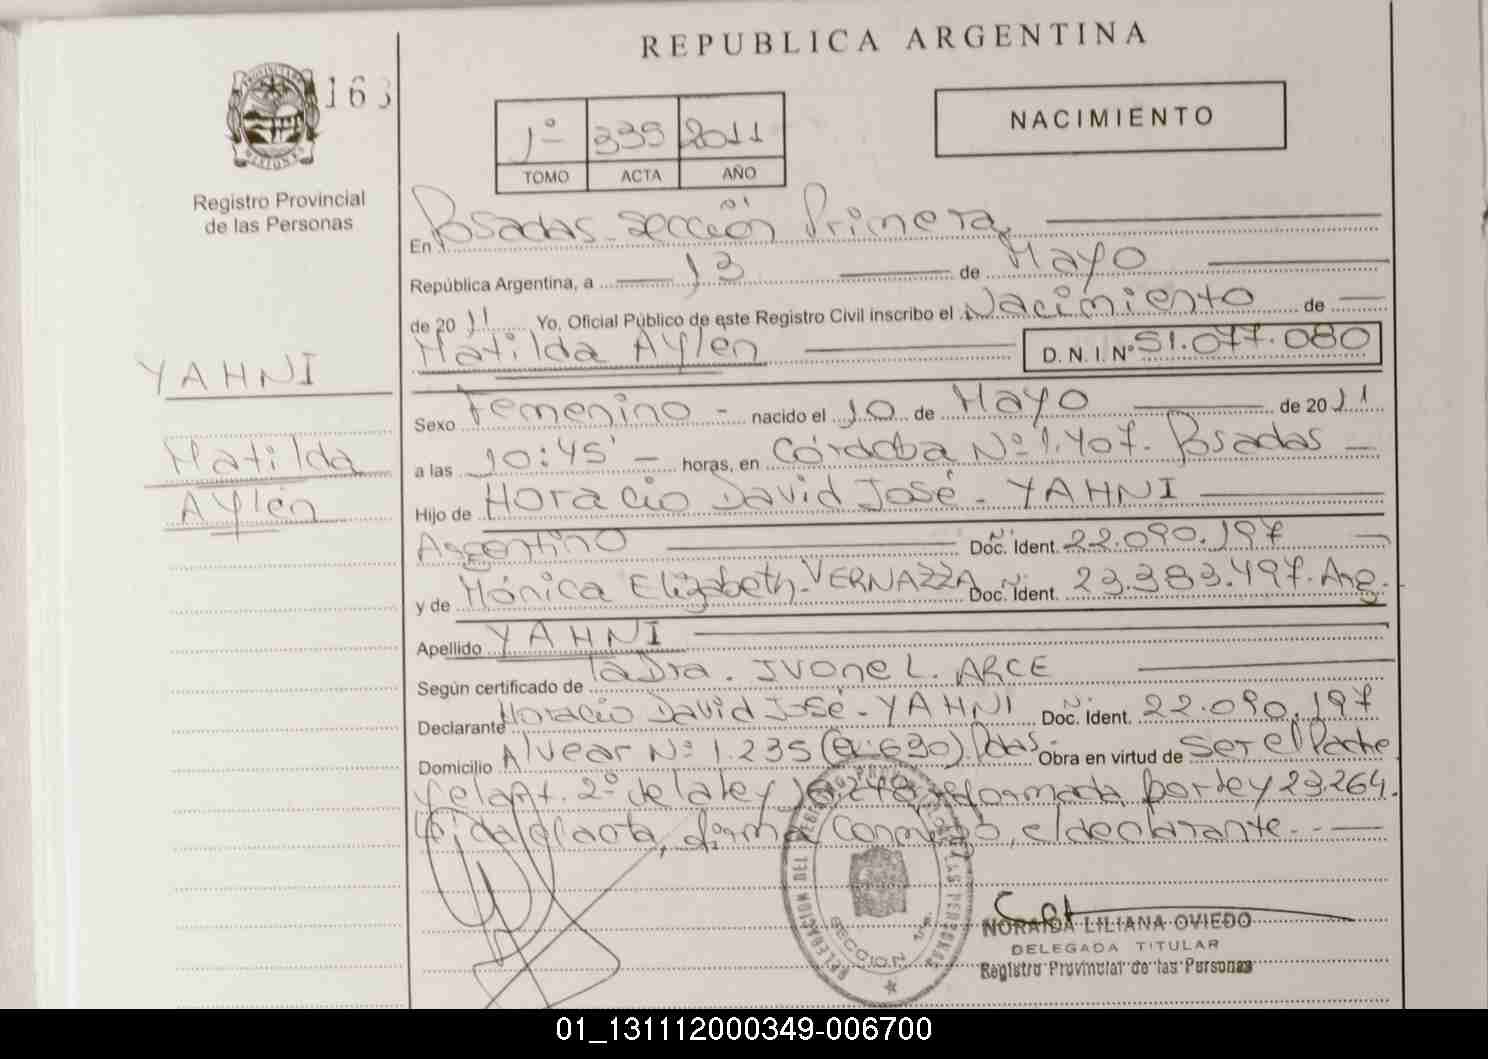 REPUBLICA ARGENTINA
163
1º 335 2011
TOMO ACTA AÑO
NACIMIENTO
Registro Provincial
de las Personas
En Posadas-sección Primera,
República Argentina, a 13 de Mayo
de 2011 Yo, Oficial Público de este Registro Civil inscribo el Nacimiento de
Matilda Aylén D. N. I. Nº 51.077.080
YAHNI
Matilda
Aylén
Sexo Femenino - nacido el 10 de Mayo de 2011
a las 10:45' - horas, en Córdoba Nº 1.407. Posadas -
Hijo de Horacio David José - YAHNI
Argentino Doc. Ident. 22.090.197
y de Mónica Elizabeth - VERNAZZA Doc. Ident. 23.383.497. Arg.
Apellido YAHNI
Según certificado de la Dra. IVONE L. ARCE
Declarante Horacio David José - YAHNI Doc. Ident. 22.090.197
Domicilio Alvear Nº 1.235 (ex: 690) Pdas - Obra en virtud de ser el Padre
y el art. 2º de la ley 18.248, reformada por ley 23.264.
Leida el acta, firma conmigo, el declarante. -
DELEGACION DEL REGISTRO PROVINCIAL DE LAS PERSONAS
SECCION 1ª
NORAIDA LILIANA OVIEDO
DELEGADA TITULAR
Registro Provincial de las Personas
01_131112000349-006700